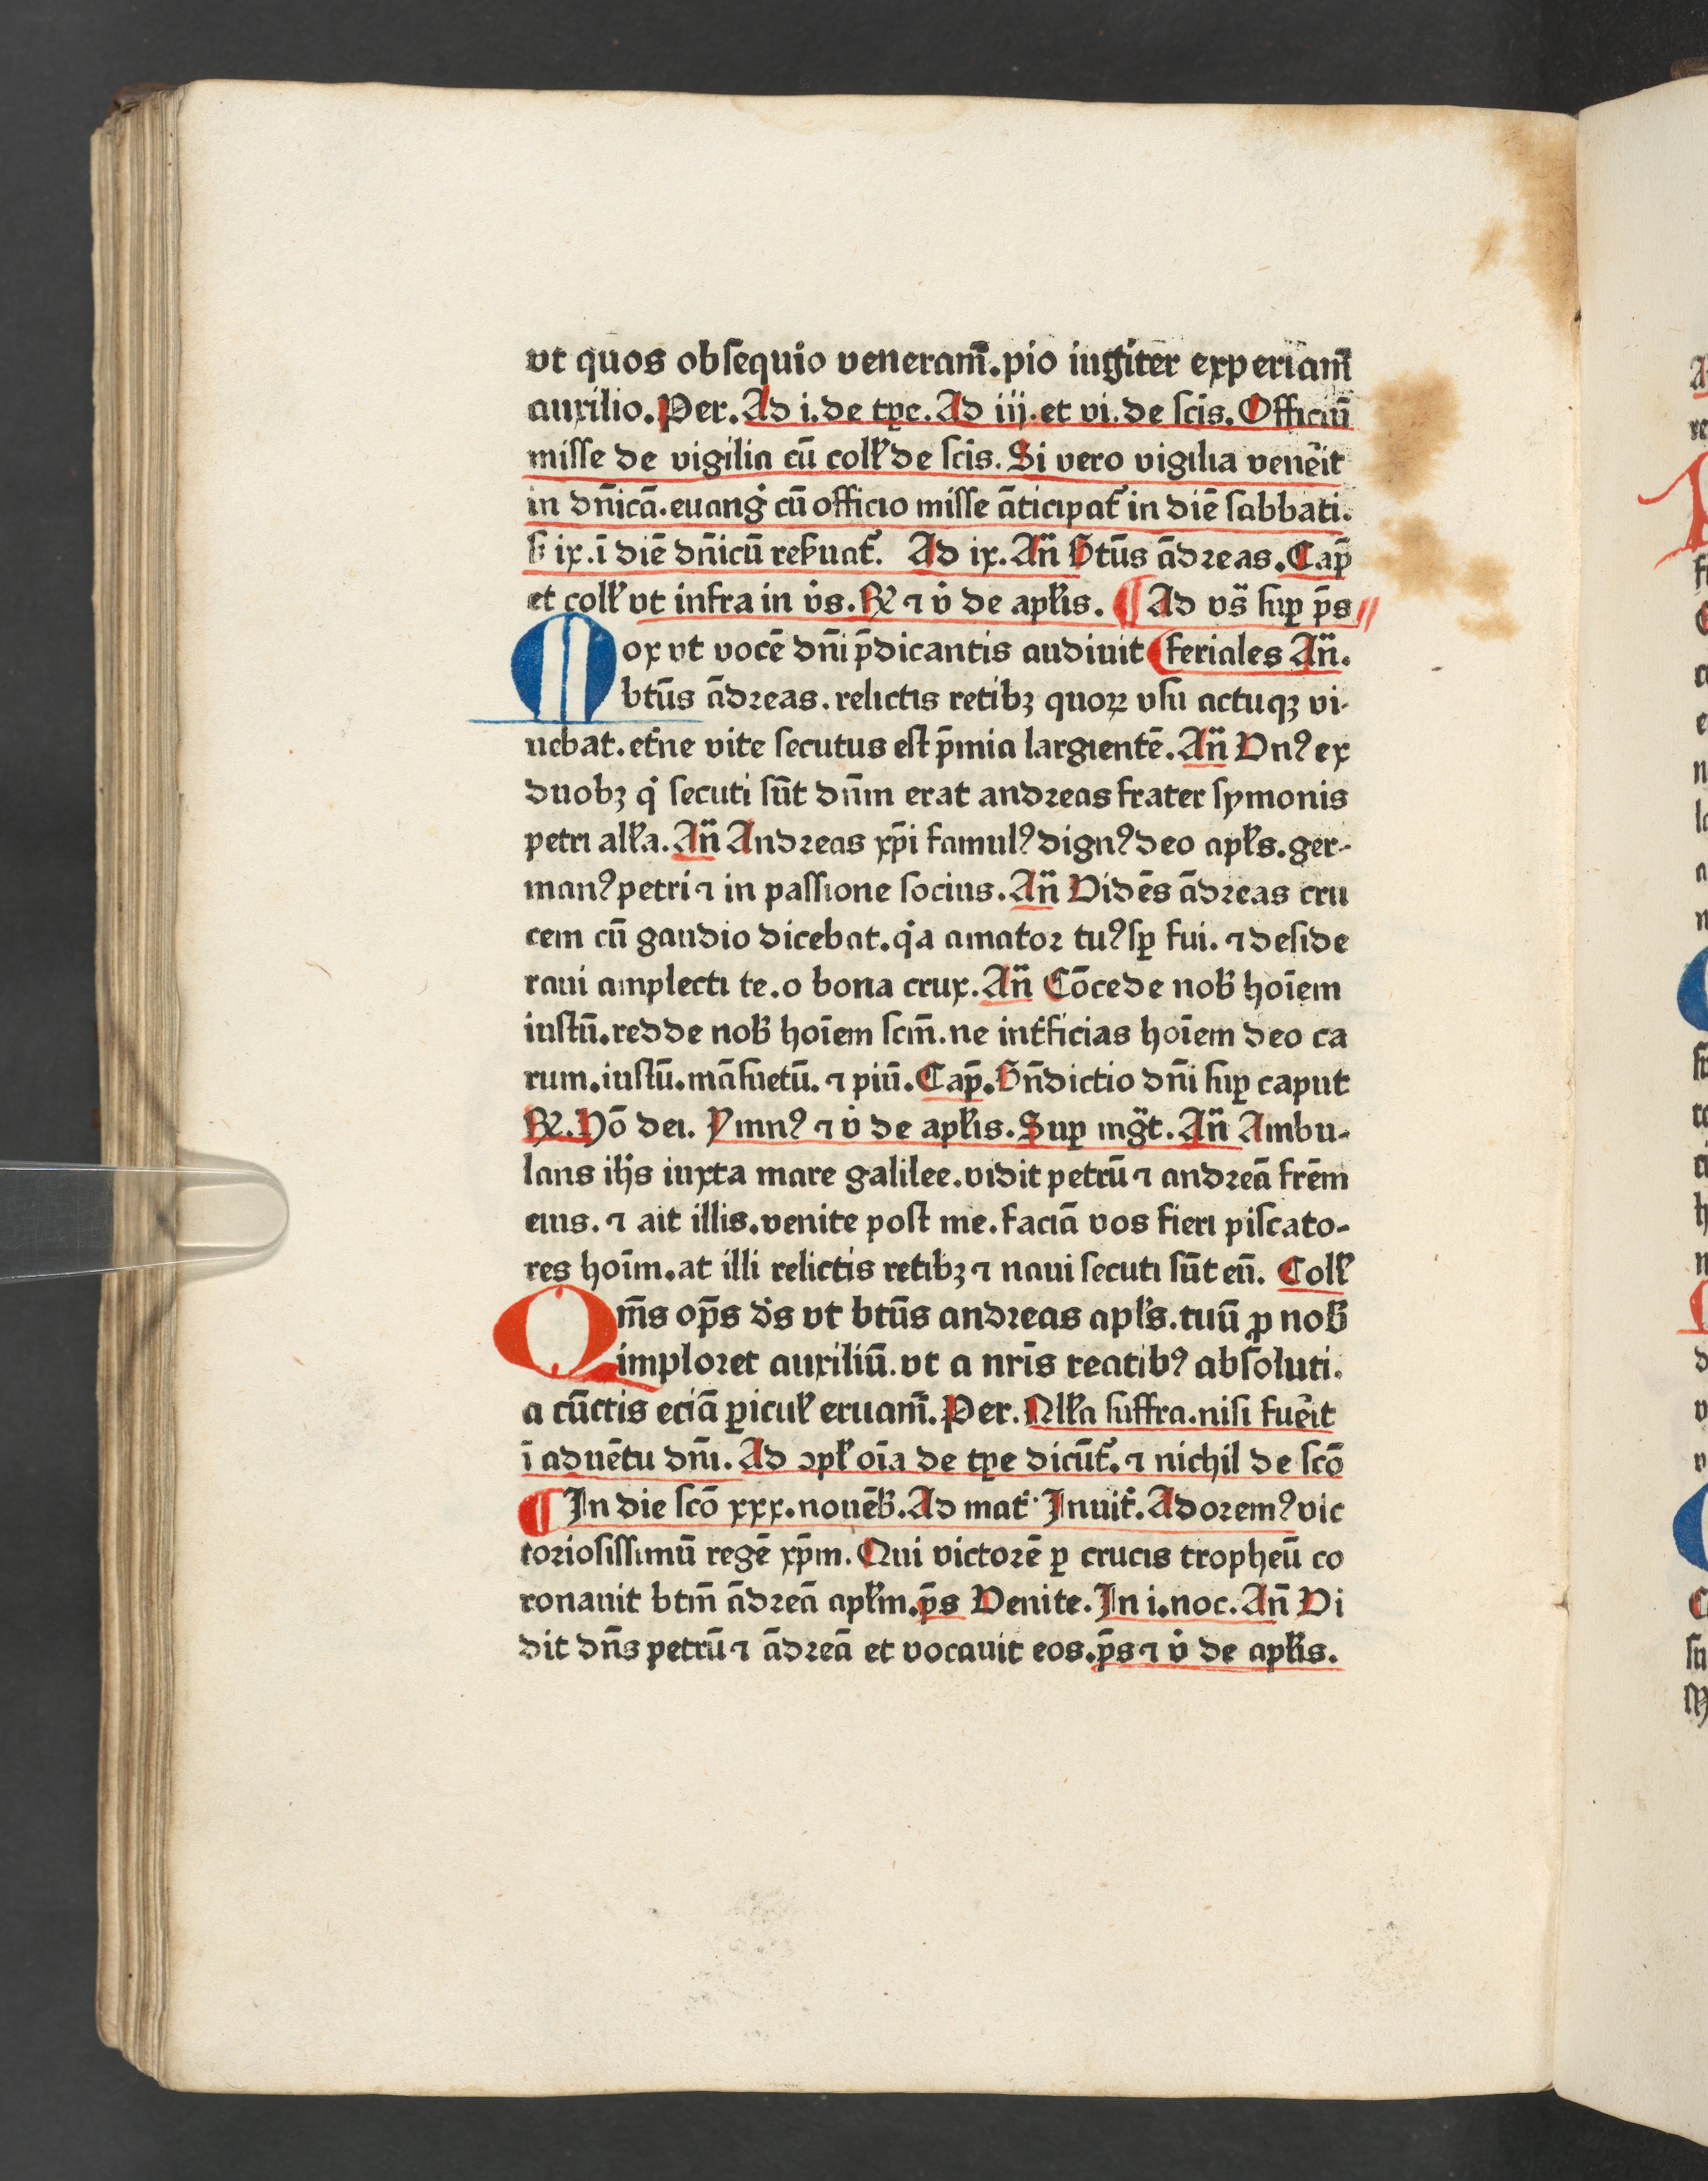 vt quos obsequio veneram̄. pio iugiter experiam̄
auxilio. Per. Ad i. de tpe. Ad iij. et vi. de scīs. Officiū
misse de vigilia cū coll̄ de scīs. Si vero vigilia venẽit
in dn̄icā. euang̉ cū officio misse āticipat᷑ in diē sabbati.
s̄ ix. ī diē dn̄icū reẜuat᷑. Ad ix. An̄ Btūs ādreas. Cap̄
et coll̄ vt infra in v̉s. ℟ ⁊ v̉ de apl̄is. ¶ Ad vs̄ suꝑ p̄s
Mox vt vocē dn̄i p̄dicantis audiuit feriales An̄.
btūs ādreas. relictis retibꝫ quoꝝ vsu actuqꝫ vi-
uebat. et̉ne vite secutus est p̄mia largientē. An̄ Vnꝰ ex
duobꝫ q̉ secuti sūt dn̄m erat andreas frater symonis
petri all̄a. An̄ Andreas xp̄i famulꝰ dignꝰ deo apl̄s. ger-
manꝰ petri ⁊ in passione socius. An̄ Vidēs ādreas cru
cem cū gaudio dicebat. q̉a amator tuꝰ sꝑ fui. ⁊ deside
raui amplecti te. o bona crux. An̄ Cōcede nob̄ hoīem
iustū. redde nob̄ hoīem scm̄. ne int̉ficias hoīem deo ca
rum. iustū. māsuetū. ⁊ piū. Cap̄. Bn̄dictio dn̄i suꝑ caput
℟. Hō dei. Ymnꝰ ⁊ v̉ de apl̄is. Suꝑ mḡt. An̄ Ambu-
lans ih̄s iuxta mare galilee. vidit petrū ⁊ andreā frēm
eius. ⁊ ait illis. venite post me. faciā vos fieri piscato-
res hoīm. at illi relictis retibꝫ ⁊ naui secuti sūt eū. Coll̄
Qm̄s op̄s d̉s vt btūs andreas apl̄s. tuū ꝓ nob̄
imploret auxiliū. vt a nrīs reatibꝰ absoluti.
a cūctis eciā ꝑicul̄ eruam̄. Per. Nll̄a suffra. nisi fuẽit
ī aduētu dn̄i. Ad ↄpl̄ oīa de tꝑe dicūt᷑. ⁊ nichil de scō
¶ In die scō xxx. nouēb̄. Ad mat̉ Inuit̉. Adoremꝰ vic
toriosissimū regē xp̄m. Qui victorē ꝑ crucis tropheū co
ronauit btm̄ ādreā apl̄m. p̄s Venite. In i. noc. An̄ Vi
dit dn̄s petrū ⁊ ādreā et vocauit eos. p̄s ⁊ v̉ de apl̄is.